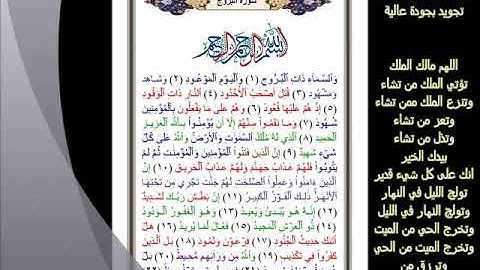 سورة البروج
بسم الله الرحمن الرحيم
وَٱلسَّمَآءِ ذَاتِ ٱلْبُرُوجِ (١) وَٱلْيَوْمِ ٱلْمَوْعُودِ (٢) وَشَاهِدٍ
وَمَشْهُودٍ (٣) قُتِلَ أَصْحَٰبُ ٱلْأُخْدُودِ (٤) ٱلنَّارِ ذَاتِ ٱلْوَقُودِ
(٥) إِذْ هُمْ عَلَيْهَا قُعُودٌ (٦) وَهُمْ عَلَىٰ مَا يَفْعَلُونَ بِٱلْمُؤْمِنِينَ
شُهُودٌ (٧) وَمَا نَقَمُوا۟ مِنْهُمْ إِلَّآ أَن يُؤْمِنُوا۟ بِٱللَّهِ ٱلْعَزِيزِ
ٱلْحَمِيدِ (٨) ٱلَّذِى لَهُۥ مُلْكُ ٱلسَّمَٰوَٰتِ وَٱلْأَرْضِ وَٱللَّهُ عَلَىٰ كُلِّ
شَىْءٍ شَهِيدٌ (٩) إِنَّ ٱلَّذِينَ فَتَنُوا۟ ٱلْمُؤْمِنِينَ وَٱلْمُؤْمِنَٰتِ ثُمَّ لَمْ
يَتُوبُوا۟ فَلَهُمْ عَذَابُ جَهَنَّمَ وَلَهُمْ عَذَابُ ٱلْحَرِيقِ (١٠) إِنَّ
ٱلَّذِينَ ءَامَنُوا۟ وَعَمِلُوا۟ ٱلصَّٰلِحَٰتِ لَهُمْ جَنَّٰتٌ تَجْرِى مِن تَحْتِهَا
ٱلْأَنْهَٰرُ ذَٰلِكَ ٱلْفَوْزُ ٱلْكَبِيرُ (١١) إِنَّ بَطْشَ رَبِّكَ لَشَدِيدٌ
(١٢) إِنَّهُۥ هُوَ يُبْدِئُ وَيُعِيدُ (١٣) وَهُوَ ٱلْغَفُورُ ٱلْوَدُودُ
(١٤) ذُو ٱلْعَرْشِ ٱلْمَجِيدُ (١٥) فَعَّالٌ لِّمَا يُرِيدُ (١٦) هَلْ
أَتَىٰكَ حَدِيثُ ٱلْجُنُودِ (١٧) فِرْعَوْنَ وَثَمُودَ (١٨) بَلِ ٱلَّذِينَ
كَفَرُوا۟ فِى تَكْذِيبٍ (١٩) وَٱللَّهُ مِن وَرَآئِهِم مُّحِيطٌۢ (٢٠) بَلْ
تجويد بجودة عالية
اللهم مالك الملك
تؤتي الملك من تشاء
وتنزع الملك ممن تشاء
وتعز من تشاء
وتذل من تشاء
بيدك الخير
انك على كل شيء قدير
تولج الليل في النهار
وتولج النهار في الليل
وتخرج الحي من الميت
وتخرج الميت من الحي
وترزق من